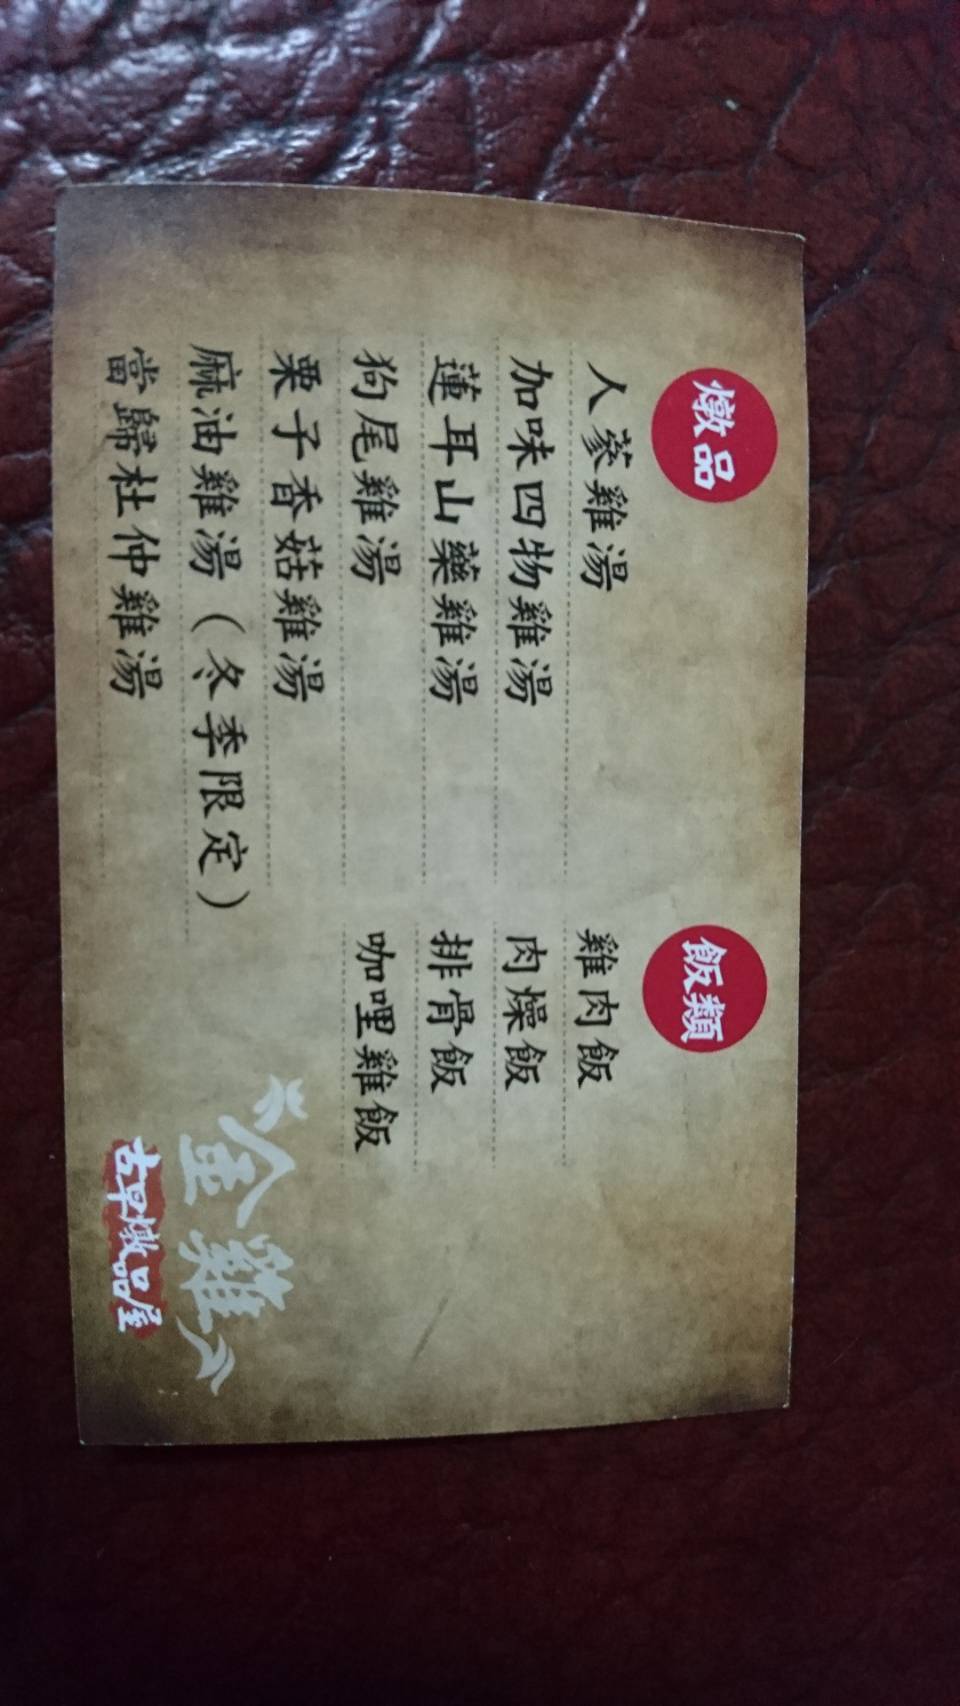 燉品
人蔘雞湯
加味四物雞湯
蓮耳山藥雞湯
狗尾雞湯
栗子香菇雞湯
麻油雞湯(冬季限定)
當歸杜仲雞湯
飯類
雞肉飯
肉燥飯
排骨飯
咖哩雞飯
金雞
古早燉品屋